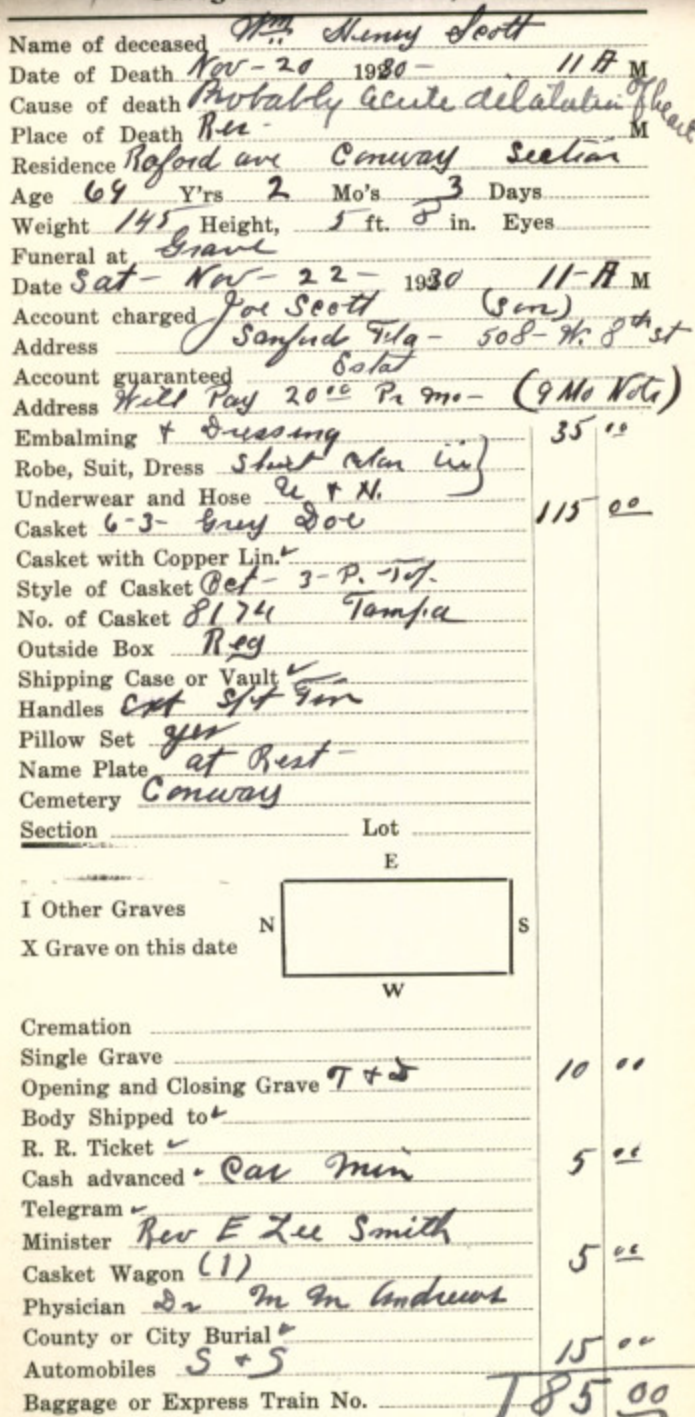 Name of deceased Wm. Henry Scott
Date of Death Nov - 20 1930 - 11 A M
Cause of death Probably acute dilatation of heart
Place of Death Res - M
Residence Ave Conway Section
Age 64 Y'rs 2 Mo's 3 Days
Weight 145 Height, 5 ft. 8 in. Eyes
Funeral at Grave
Date Sat - Nov - 22 - 1930 11 - A M
Account charged Joe Scott (son)
Address Sanford Fla - 508 - W. 8th st
Account guaranteed
Address Will Pay 20.00 Pr mo - (9 Mo Note)
Embalming & Dressing 35 00
Robe, Suit, Dress Shirt
Underwear and Hose U & H.
Casket 6-3- Grey Doe 115 00
Casket with Copper Lin. ✓
Style of Casket Oct - 3 - P. -
No. of Casket 8174 Tampa
Outside Box Reg
Shipping Case or Vault ✓
Handles Ext
Pillow Set yes
Name Plate at Rest -
Cemetery Conway
Section Lot
E
I Other Graves
N S
X Grave on this date
W
Cremation
Single Grave
Opening and Closing Grave 10 00
Body Shipped to ✓
R. R. Ticket ✓
Cash advanced Car Min 5 00
Telegram ✓
Minister Rev E Lee Smith
Casket Wagon (1) 5 00
Physician Dr M M Andrews
County or City Burial ✓
Automobiles S & S 15 00
Baggage or Express Train No. 185 00